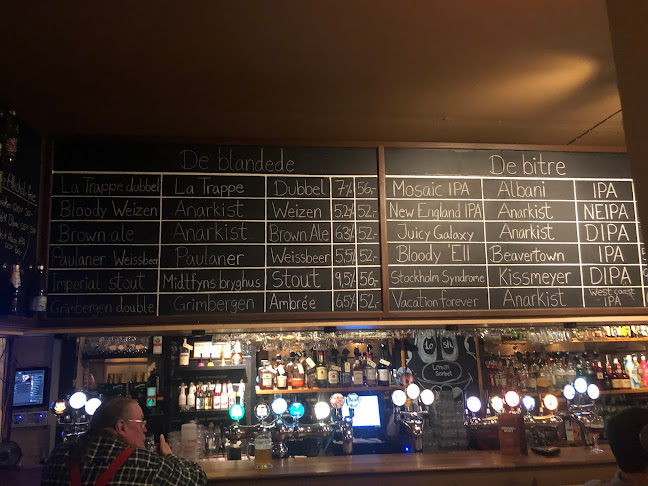 De blandede
La Trappe dubbel La Trappe Dubbel 7% 56,-
Bloody Weizen Anarkist Weizen 5,2% 52,-
Brown ale Anarkist Brown Ale 6,3% 52,-
Paulaner Weissbeer Paulaner Weissbeer 5,5% 52,-
Imperial stout Midtfyns bryghus Stout 9,5% 56,-
Grimbergen double Grimbergen Ambrée 6,5% 52,-
De bitre
Mosaic IPA Albani IPA
New England IPA Anarkist NEIPA
Juicy Galaxy Anarkist DIPA
Bloody 'Ell Beavertown IPA
Stockholm Syndrome Kissmeyer DIPA
Vacation forever Anarkist West coast IPA
Lemon
Sorbet